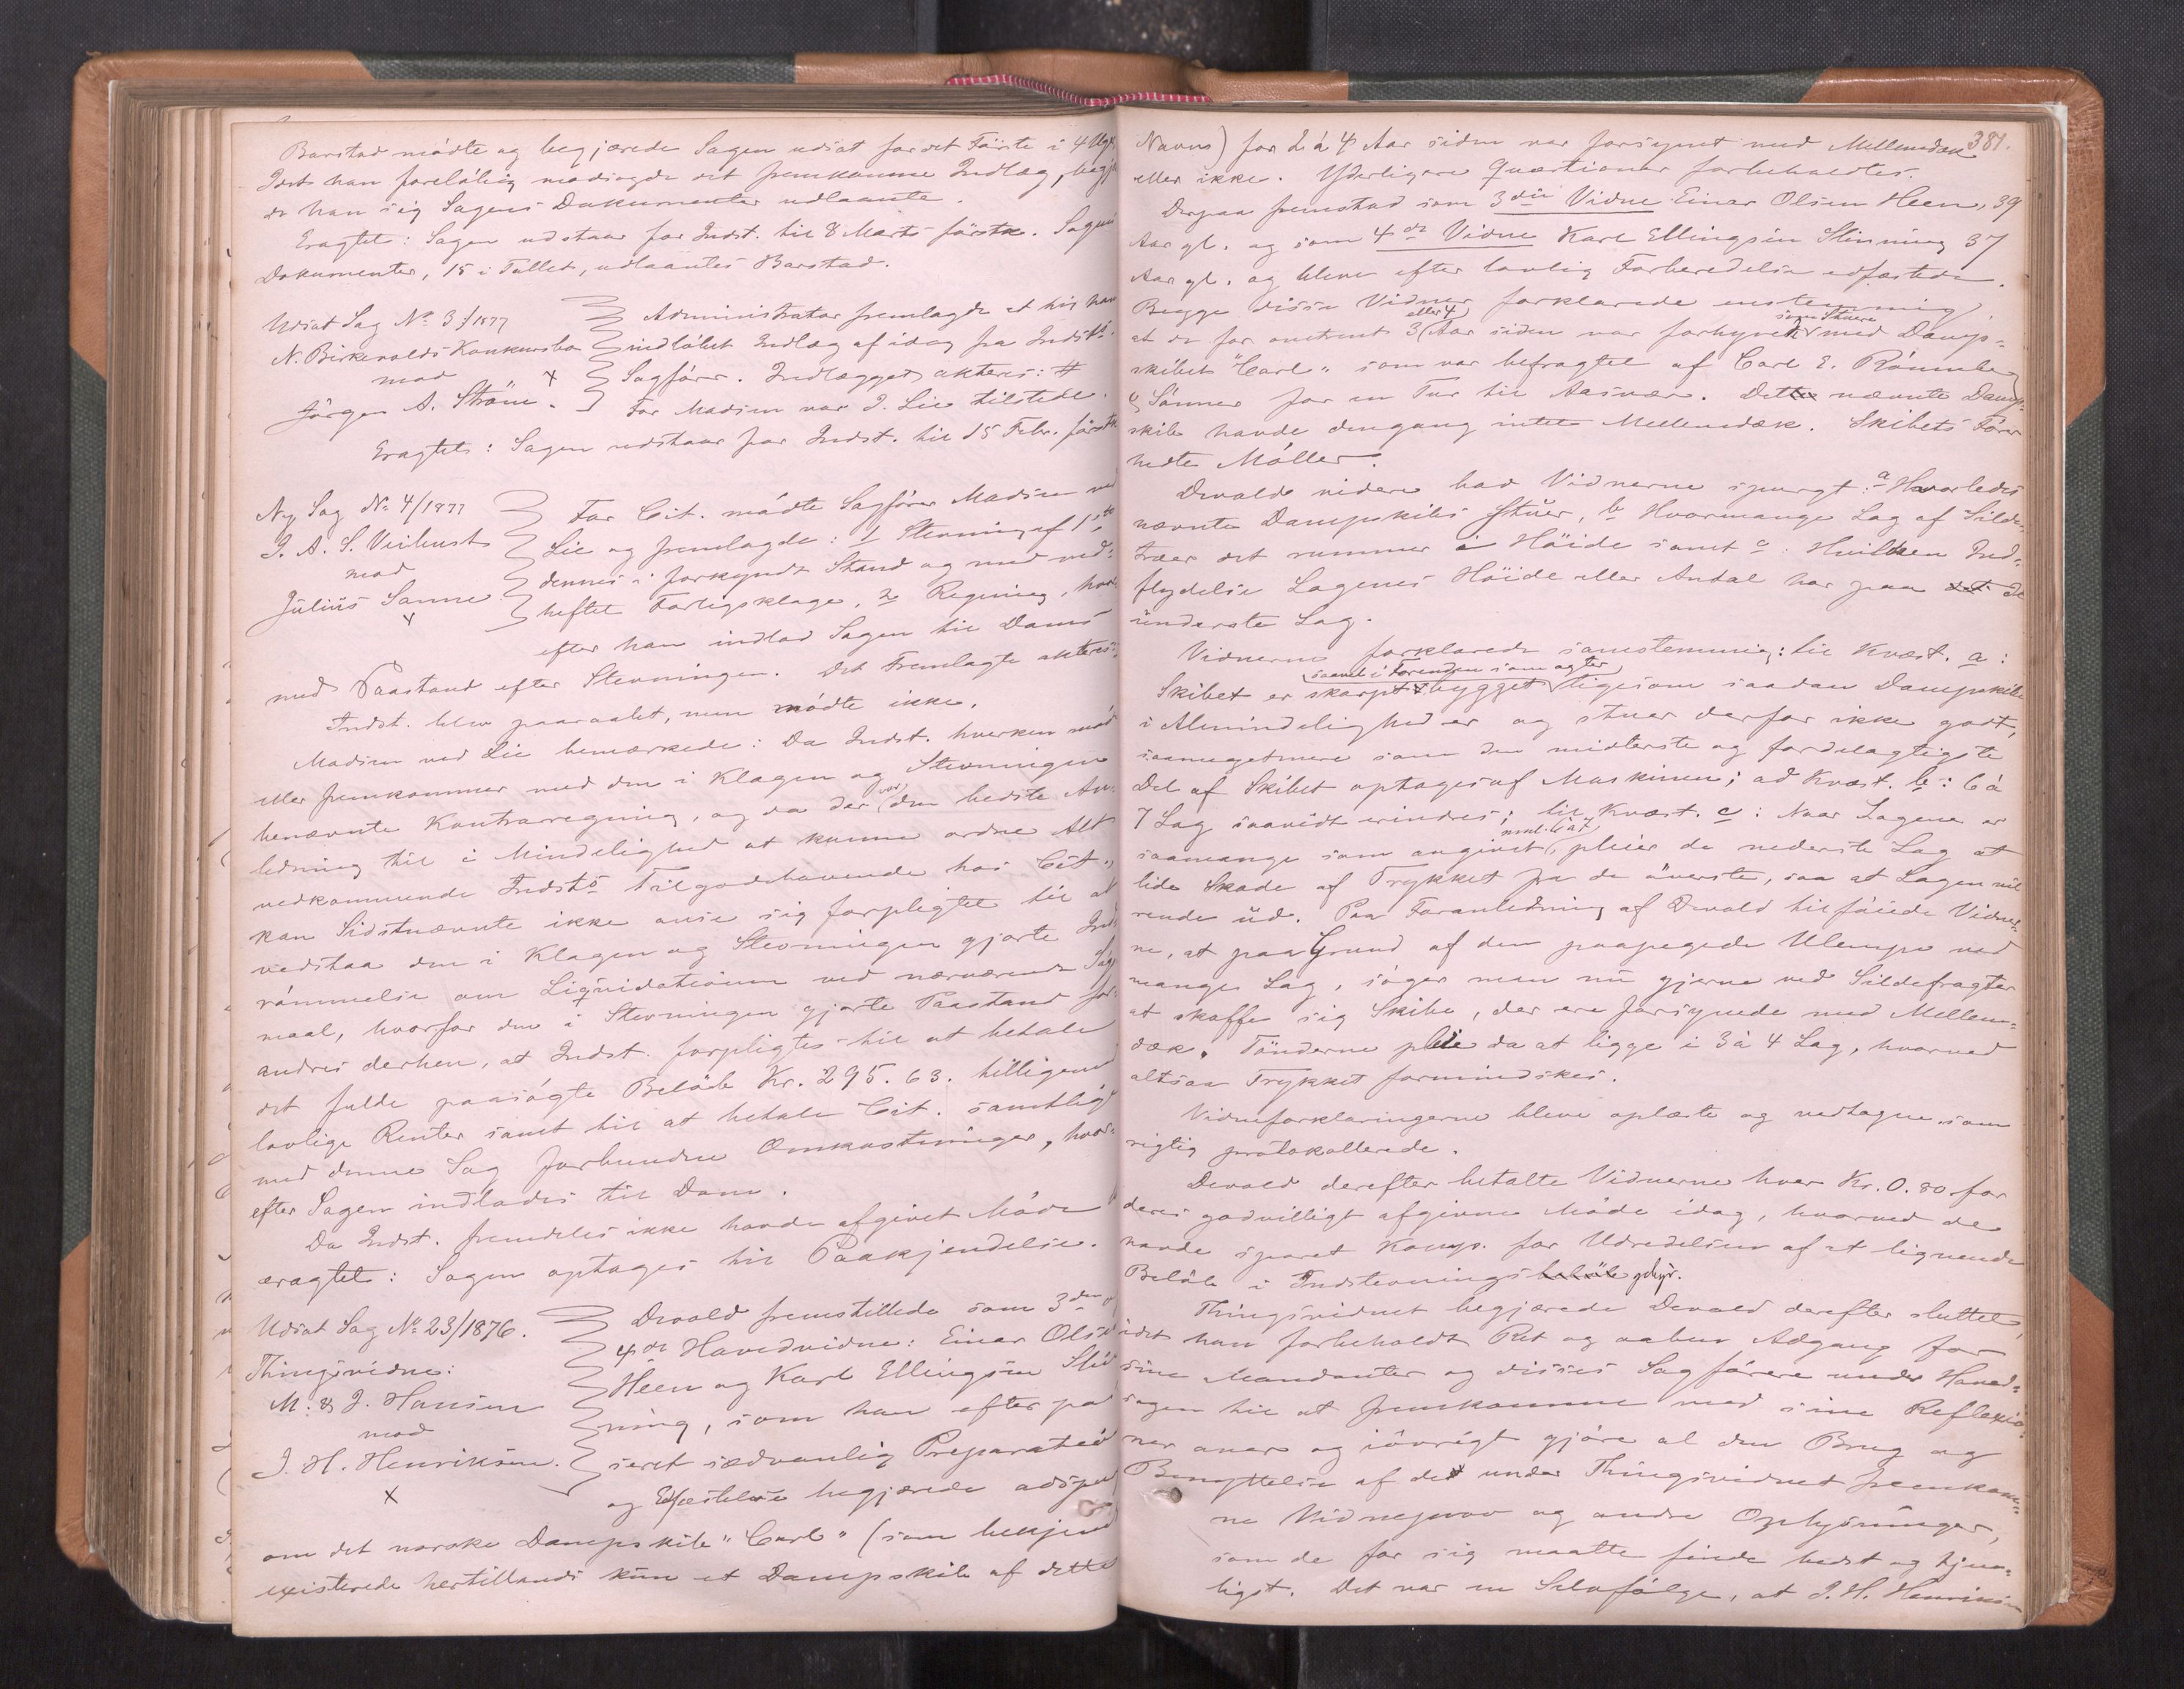 Barstad mödte og begjærede Sagen udsat for det Förste i 4 Uger,
Idet han foreløbig modsagde det fremkomne Indlæg, begjær
er han sig Sagens Dokumenter udlaante.
Eragtet: Sagen udstaar for Indst. til 8 Marts förstk. Sagens
Dokumenter, 15 i Tallet, udlaantes Barstad.
Udsat Sag No 3/1877
N. Birkevolds Konkursbo
mod
Jörgen A. Ström.
Administrator fremlagde et his ham
indlöbet Indlæg af idag fra Indsts
Sagförer. Indlægget akteres: #
For Madsen var J. Lie tilstede.
Eragtet: Sagen udstaar for Indst. til 15 Febr. förstk
Ny Sag No 4/1877
J. A. S. Veibust
mod
Julius Sanne
For Cit. mödte Sagförer Madsen ved
Lie og fremlagde: 1 Stevning af 1ste
dennes i forkyndt Stand og med ved-
heftet Forligsklage, 2 Regning, hvor-
efter han indlod Sagen til Doms
med Paastand efter Stevningen. Det Fremlagte akteres:
Indst. blev paaraabt, men mödte ikke.
Madsen ved Lie bemærkede: Da Indst. hverken mød
eller fremkommer med den i Klagen og Stevningen
benævnte Kontraregning, og da der var den bedste An-
ledning til i Mindelighed at kunne ordne Alt
vedkommende Indsts Tilgodehavende hos Cit.,
kan Sidstnævnte ikke anse sig forpligtet til at
vedstaa den i Klagen og Stevningen gjorte Ind-
römmelse om Liqvidationen ved nærværende Sög-
maal, hvorfor den i Stevningen gjorte Paastand for-
andres derhen, at Indst. forpligtes til at betale
det fulde paasögte Belöb Kr. 295.63. tilligemed
lovlige Renter samt til at betale Cit. samtlige
med denne Sag forbundne Omkostninger, hvor-
efter Sagen indlodes til Dom.
Da Indst. fremdeles ikke havde afgivet Möde
eragtet: Sagen optages til Paakjendelse.
Udsat Sag No 23/1876.
Thingsvidne:
M. & J. Hansen
mod
J. H. Henriksen.
Devold fremstillede som 3die o
4de Hovedvidne: Einar Olsen
Heen og Karl Ellingsen Slin
ning, som han efter pas
seret sædvanlig Preparation
og Edfæstelse begjærede adspur
om det norske Dampskib "Carl" (som bekjend
existerede hertillands kun et Dampskib af dette
381.
Navn) for 2 à 4 Aar siden var forsynet med Mellemdæk
eller ikke. Yderligere Qvæstioner forbeholdtes.
Derpaa fremstod som 3die Vidne Einar Olsen Heen, 39
Aar gl. og som 4de Vidne Karl Ellingsen Slinning 37
Aar gl. og bleve efter lovlig Forberedelse edfæstede.
Begge disse Vidner forklarede enstemmig,
at de for omtrent 3 eller 4 Aar siden var forhyret som Stuere med Damp-
skibet "Carl" som var befragtet af Carl E. Rönneberg
& Sönner for en Tur til Aasvær. Dette nævnte Damp-
skib havde dengang intet Mellemdæk. Skibets Förer
hedte Möller.
Devold videre bad Vidnerne spurgt: a Hvorledes
nævnte Dampskib stuer, b Hvormange Lag af Silde-
træer det rummer i Höide samt c: Hvilken Ind-
flydelse Lagenes Höide eller Antal har paa det de
underste Lag.
Vidnerne forklarede samstemmig: til Kvæst. a:
Skibet er skarpt bygget saavel i Forenden som agter ligesom saadan Dampskibe
i Almindelighed er og stuer derfor ikke godt,
saameget mere som den midterste og fordelagtigste
Del af Skibet optages af Maskinen; ad Kvæst. b: 6 à
7 Lag saavidt erindres; til Kvæst. c: Naar Lagene er
saamange som angivet, nml. 6 à 7, pleier de nederste Lag at
lide Skade af Trykket fra de överste, saa at Lagen vil
rende ud. Paa Foranledning af Devold tilföiede Vidner-
ne, at paa Grund af den paapegede Ulempe ved
mange Lag, söger man nu gjerne ved Sildefragter
at skaffe sig Skibe, der ere forsynede med Mellem-
dæk. Tönderne pleie da at ligge i 3 à 4 Lag, hvorved
altsaa Trykket formindskes.
Vidneforklaringerne bleve oplæste og vedtagne som
rigtig protokollerede.
Devold derefter betalte Vidnerne hver Kr. 0.80 for
deres godvilligt afgivne Möde idag, hvorved de
havde sparet Komp. for Udredelsen af et lignende
Belöb i Indstevnings belöb gebyr.
Thingsvidnet begjærede Devold derefter sluttet,
idet han forbeholdt Ret og aaben Adgang for
sine Mandanter og disses Sagförere under Hoved-
sagen til at fremkomme med sine Reflexio-
ner over og iövrigt gjöre al den Brug og
Benyttelse af det under Thingsvidnet fremkom-
ne Vidneprov og andre Oplysninger,
som de for sig maatte finde bedst og tjen-
ligst. Det var en Selvfölge, at J. H. Henriksen